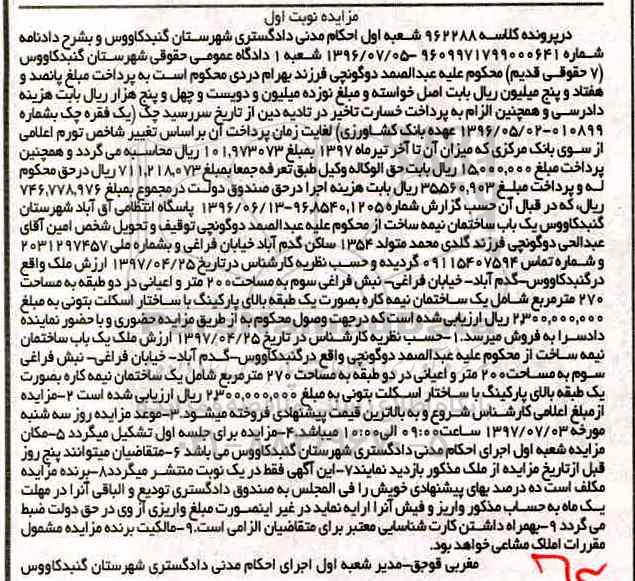 مزایده نوبت اول
درپرونده کلاسه ۹۶۲۲۸۸ شعبه اول احکام مدنی دادگستری شهرستان گنبدکاووس و بشرح دادنامه
شماره ۹۶۰۹۹۷۱۷۹۹۰۰۰۶۴۱ -۱۳۹۶/۰۷/۰۵ شعبه ۱ دادگاه عمومی حقوقی شهرستان گنبدکاووس
(۷ حقوقی قدیم) محکوم علیه عبدالصمد دوگونچی فرزند بهرام دردی محکوم است به پرداخت مبلغ پانصد و
هفتاد و پنج میلیون ریال بابت اصل خواسته و مبلغ نوزده میلیون و دویست و چهل و پنج هزار ریال بابت هزینه
دادرسی و همچنین الزام به پرداخت خسارت تاخیر در تادیه دین از تاریخ سررسید چک (یک فقره چک بشماره
۰۱۰۸۹۹-۱۳۹۶/۰۵/۰۲ عهده بانک کشاورزی) لغایت زمان پرداخت آن براساس تغییر شاخص تورم اعلامی
از سوی بانک مرکزی که میزان آن تا آخر تیرماه ۱۳۹۷ بمبلغ ۱۰۱,۹۷۳۰۷۳ ریال محاسبه می گردد و همچنین
پرداخت مبلغ ۱۵,۰۰۰,۰۰۰ ریال بابت حق الوکاله وکیل طبق تعرفه جمعا بمبلغ ۷۱۱,۲۱۸,۰۷۳ ریال درحق محکوم
له و پرداخت مبلغ ۳۵۵۶۰,۹۰۳ ریال بابت هزینه اجرا درحق صندوق دولت درمجموع بمبلغ ۷۴۶,۷۷۸,۹۷۶
ریال، که در قبال آن حسب گزارش شماره ۹۶,۸۵۴۰,۱۲۰۵-۱۳۹۶/۰۶/۱۳ پاسگاه انتظامی آق آباد شهرستان
گنبدکاووس یک باب ساختمان نیمه ساخت از محکوم علیه عبدالصمد دوگونچی توقیف و تحویل شخص امین آقای
عبدالحی دوگونچی فرزند گلدی محمد متولد ۱۳۵۴ ساکن گدم آباد خیابان فراغی و بشماره ملی ۲۰۳۱۲۹۷۴۵۷
و شماره تماس ۰۹۱۱۵۴۰۷۵۹۴ گردیده و حسب نظریه کارشناس درتاریخ ۱۳۹۷/۰۴/۲۵ ارزش ملک واقع
درگنبدکاووس-گدم آباد- خیابان فراغی- نبش فراغی سوم به مساحت ۲۰۰ متر و اعیانی در دو طبقه به مساحت
۲۷۰ مترمربع شامل یک ساختمان نیمه کاره بصورت یک طبقه بالای پارکینگ با ساختار اسکلت بتونی به مبلغ
۲,۳۰۰,۰۰۰,۰۰۰ ریال ارزیابی شده است که درجهت وصول محکوم به از طریق مزایده حضوری و با حضور نماینده
دادسرا به فروش میرسد.۱-حسب نظریه کارشناس در تاریخ ۱۳۹۷/۰۴/۲۵ ارزش ملک یک باب ساختمان
نیمه ساخت از محکوم علیه عبدالصمد دوگونچی واقع درگنبدکاووس-گدم آباد- خیابان فراغی- نبش فراغی
سوم به مساحت ۲۰۰ متر و اعیانی در دو طبقه به مساحت ۲۷۰ مترمربع شامل یک ساختمان نیمه کاره بصورت
یک طبقه بالای پارکینگ با ساختار اسکلت بتونی به مبلغ ۲,۳۰۰,۰۰۰,۰۰۰ ریال ارزیابی شده است ۲-مزایده
از مبلغ اعلامی کارشناس شروع و به بالاترین قیمت پیشنهادی فروخته میشود.۳-موعد مزایده روز سه شنبه
مورخه ۱۳۹۷/۰۷/۰۳ ساعت ۰۹:۰۰ الی۱۰:۰۰ میباشد.۴-مزایده برای جلسه اول تشکیل میگردد ۵-مکان
مزایده شعبه اول اجرای احکام مدنی دادگستری شهرستان گنبدکاووس می باشد ۶-متقاضیان میتوانند پنج روز
قبل ازتاریخ مزایده از ملک مذکور بازدید نمایند۷-این آگهی فقط در یک نوبت منتشر میگردد۸-برنده مزایده
مکلف است ده درصد بهای پیشنهادی خویش را فی المجلس به صندوق دادگستری تودیع و الباقی آنرا در مهلت
یک ماه به حساب مذکور واریز و فیش آنرا ارایه نماید در غیر اینصورت مبلغ واریزی از وی در حق دولت ضبط
می گردد ۹-بهمراه داشتن کارت شناسایی معتبر برای متقاضیان الزامی است.۹-مالکیت برنده مزایده مشمول
مقررات املاک مشاعی خواهد بود.
مغربی قوجق-مدیر شعبه اول اجرای احکام مدنی دادگستری شهرستان گنبدکاووس